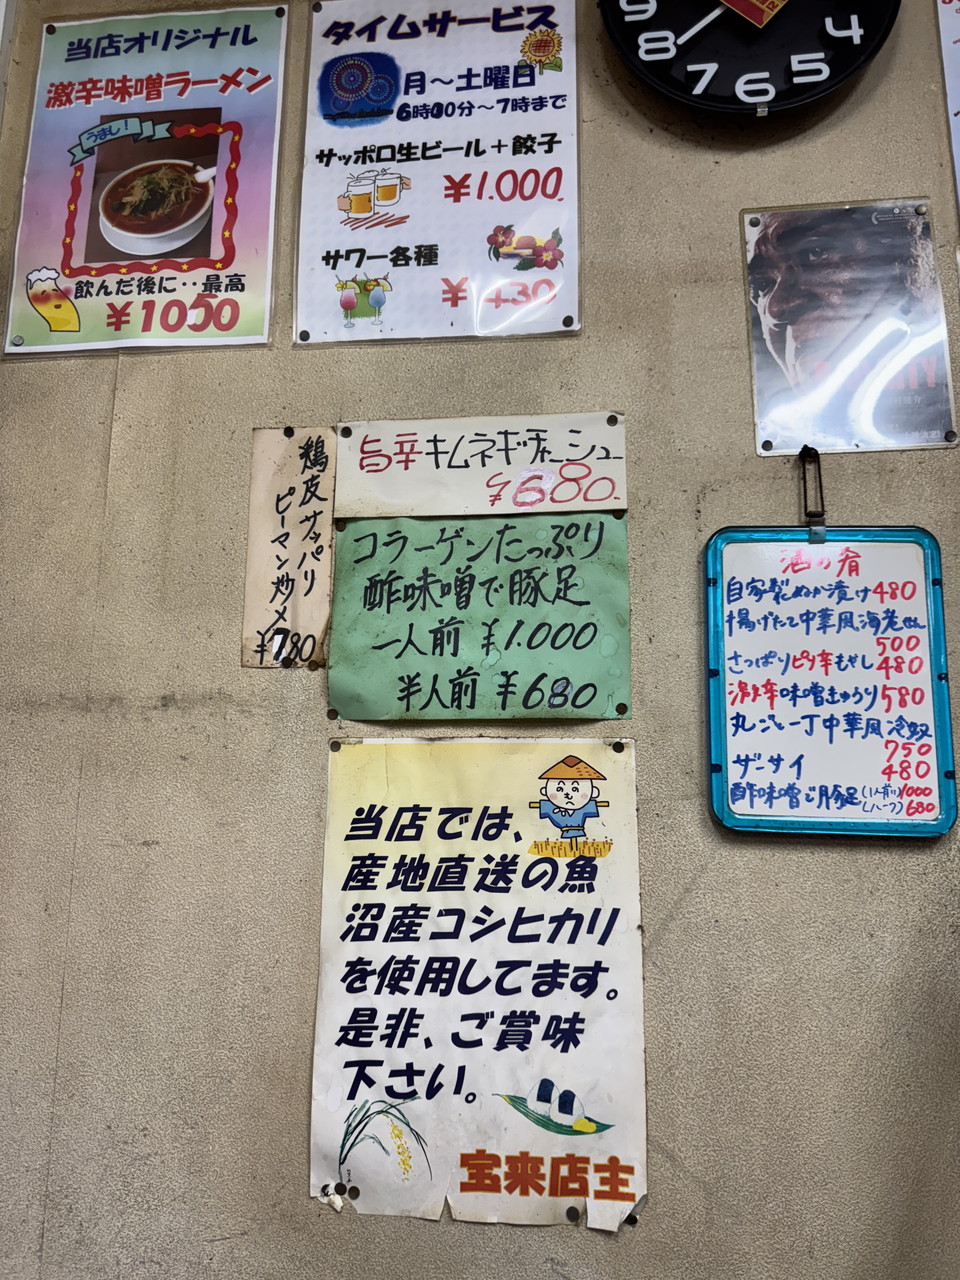 当店オリジナル
激辛味噌ラーメン
うまし!
飲んだ後に‥最高
¥1050
タイムサービス
月〜土曜日
6時00分〜7時まで
サッポロ生ビール+餃子
¥1.000
サワー各種
¥430
9
8
7
6
5
4
旨辛キムネギチャーシュー
¥680.
鶏皮サッパリ
ピーマン炒メ
¥780
コラーゲンたっぷり
酢味噌で豚足
一人前 ¥1.000
半人前 ¥680
酒の肴
自家製ぬか漬け480
揚げたて中華風海老せん
500
さっぱりピリ辛もやし480
激辛味噌きゅうり580
丸ごと一丁中華風冷奴
750
ザーサイ 480
酢味噌で豚足(1人前)1000
(ハーフ)680
当店では、
産地直送の魚
沼産コシヒカリ
を使用してます。
是非、ご賞味
下さい。
宝来店主